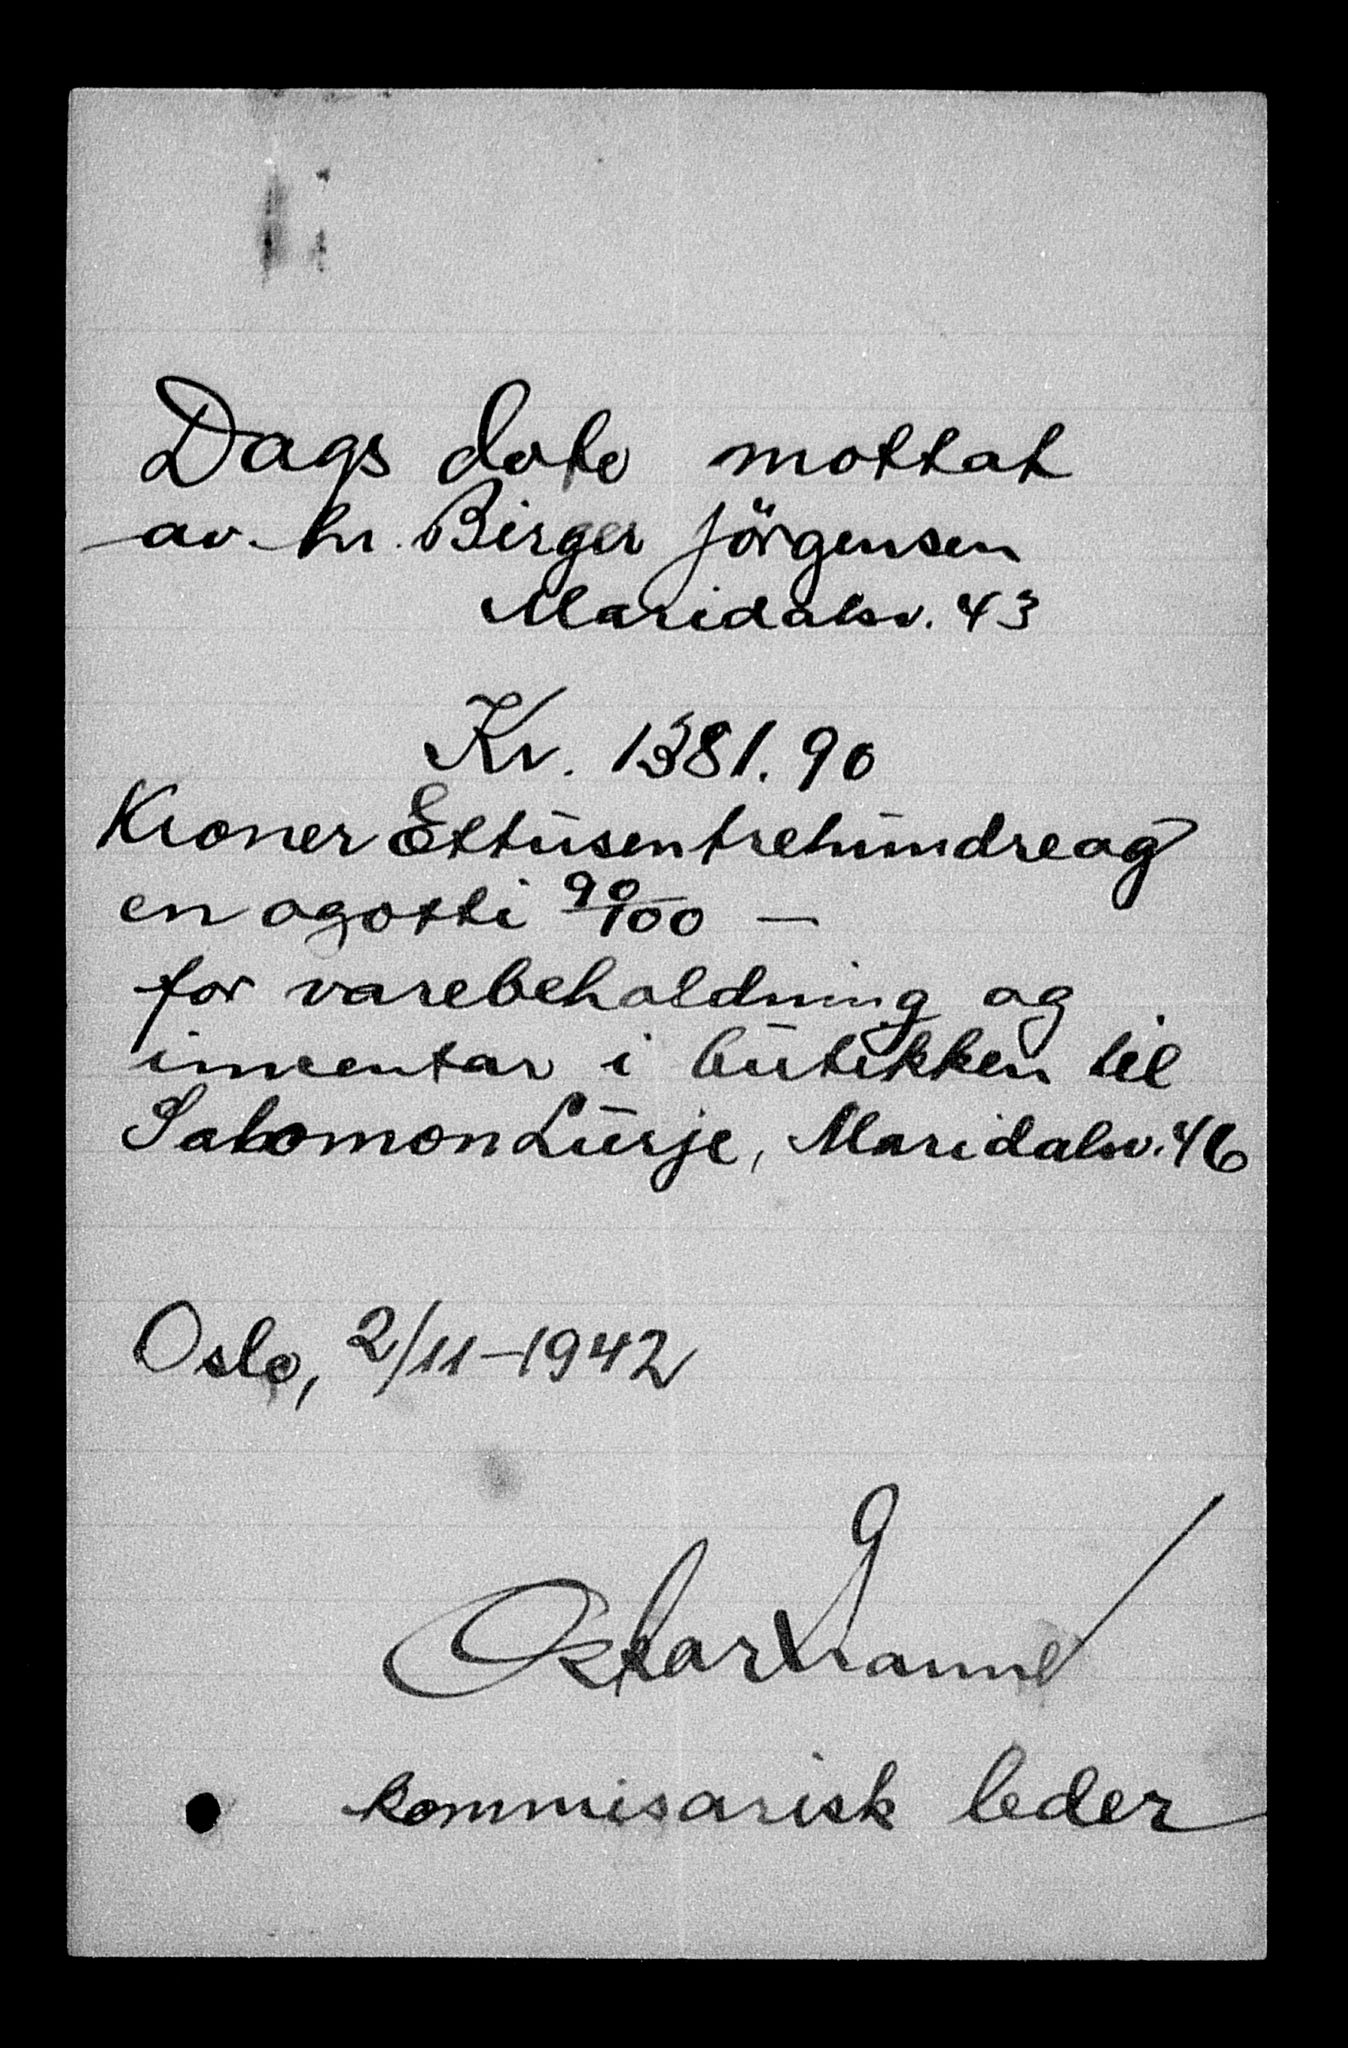 Dags dato mottat
av hr. Birger Jörgensen
Maridalsv. 43
Kr. 1381.90
Kroner Ettusentrehundreog
en ogotti 90/100 —
for varebeholdning og
inventar i butikken til
Salomon Lurje, Maridalsv. 46
Oslo, 2/11-1942
Oskar
kommisarisk leder